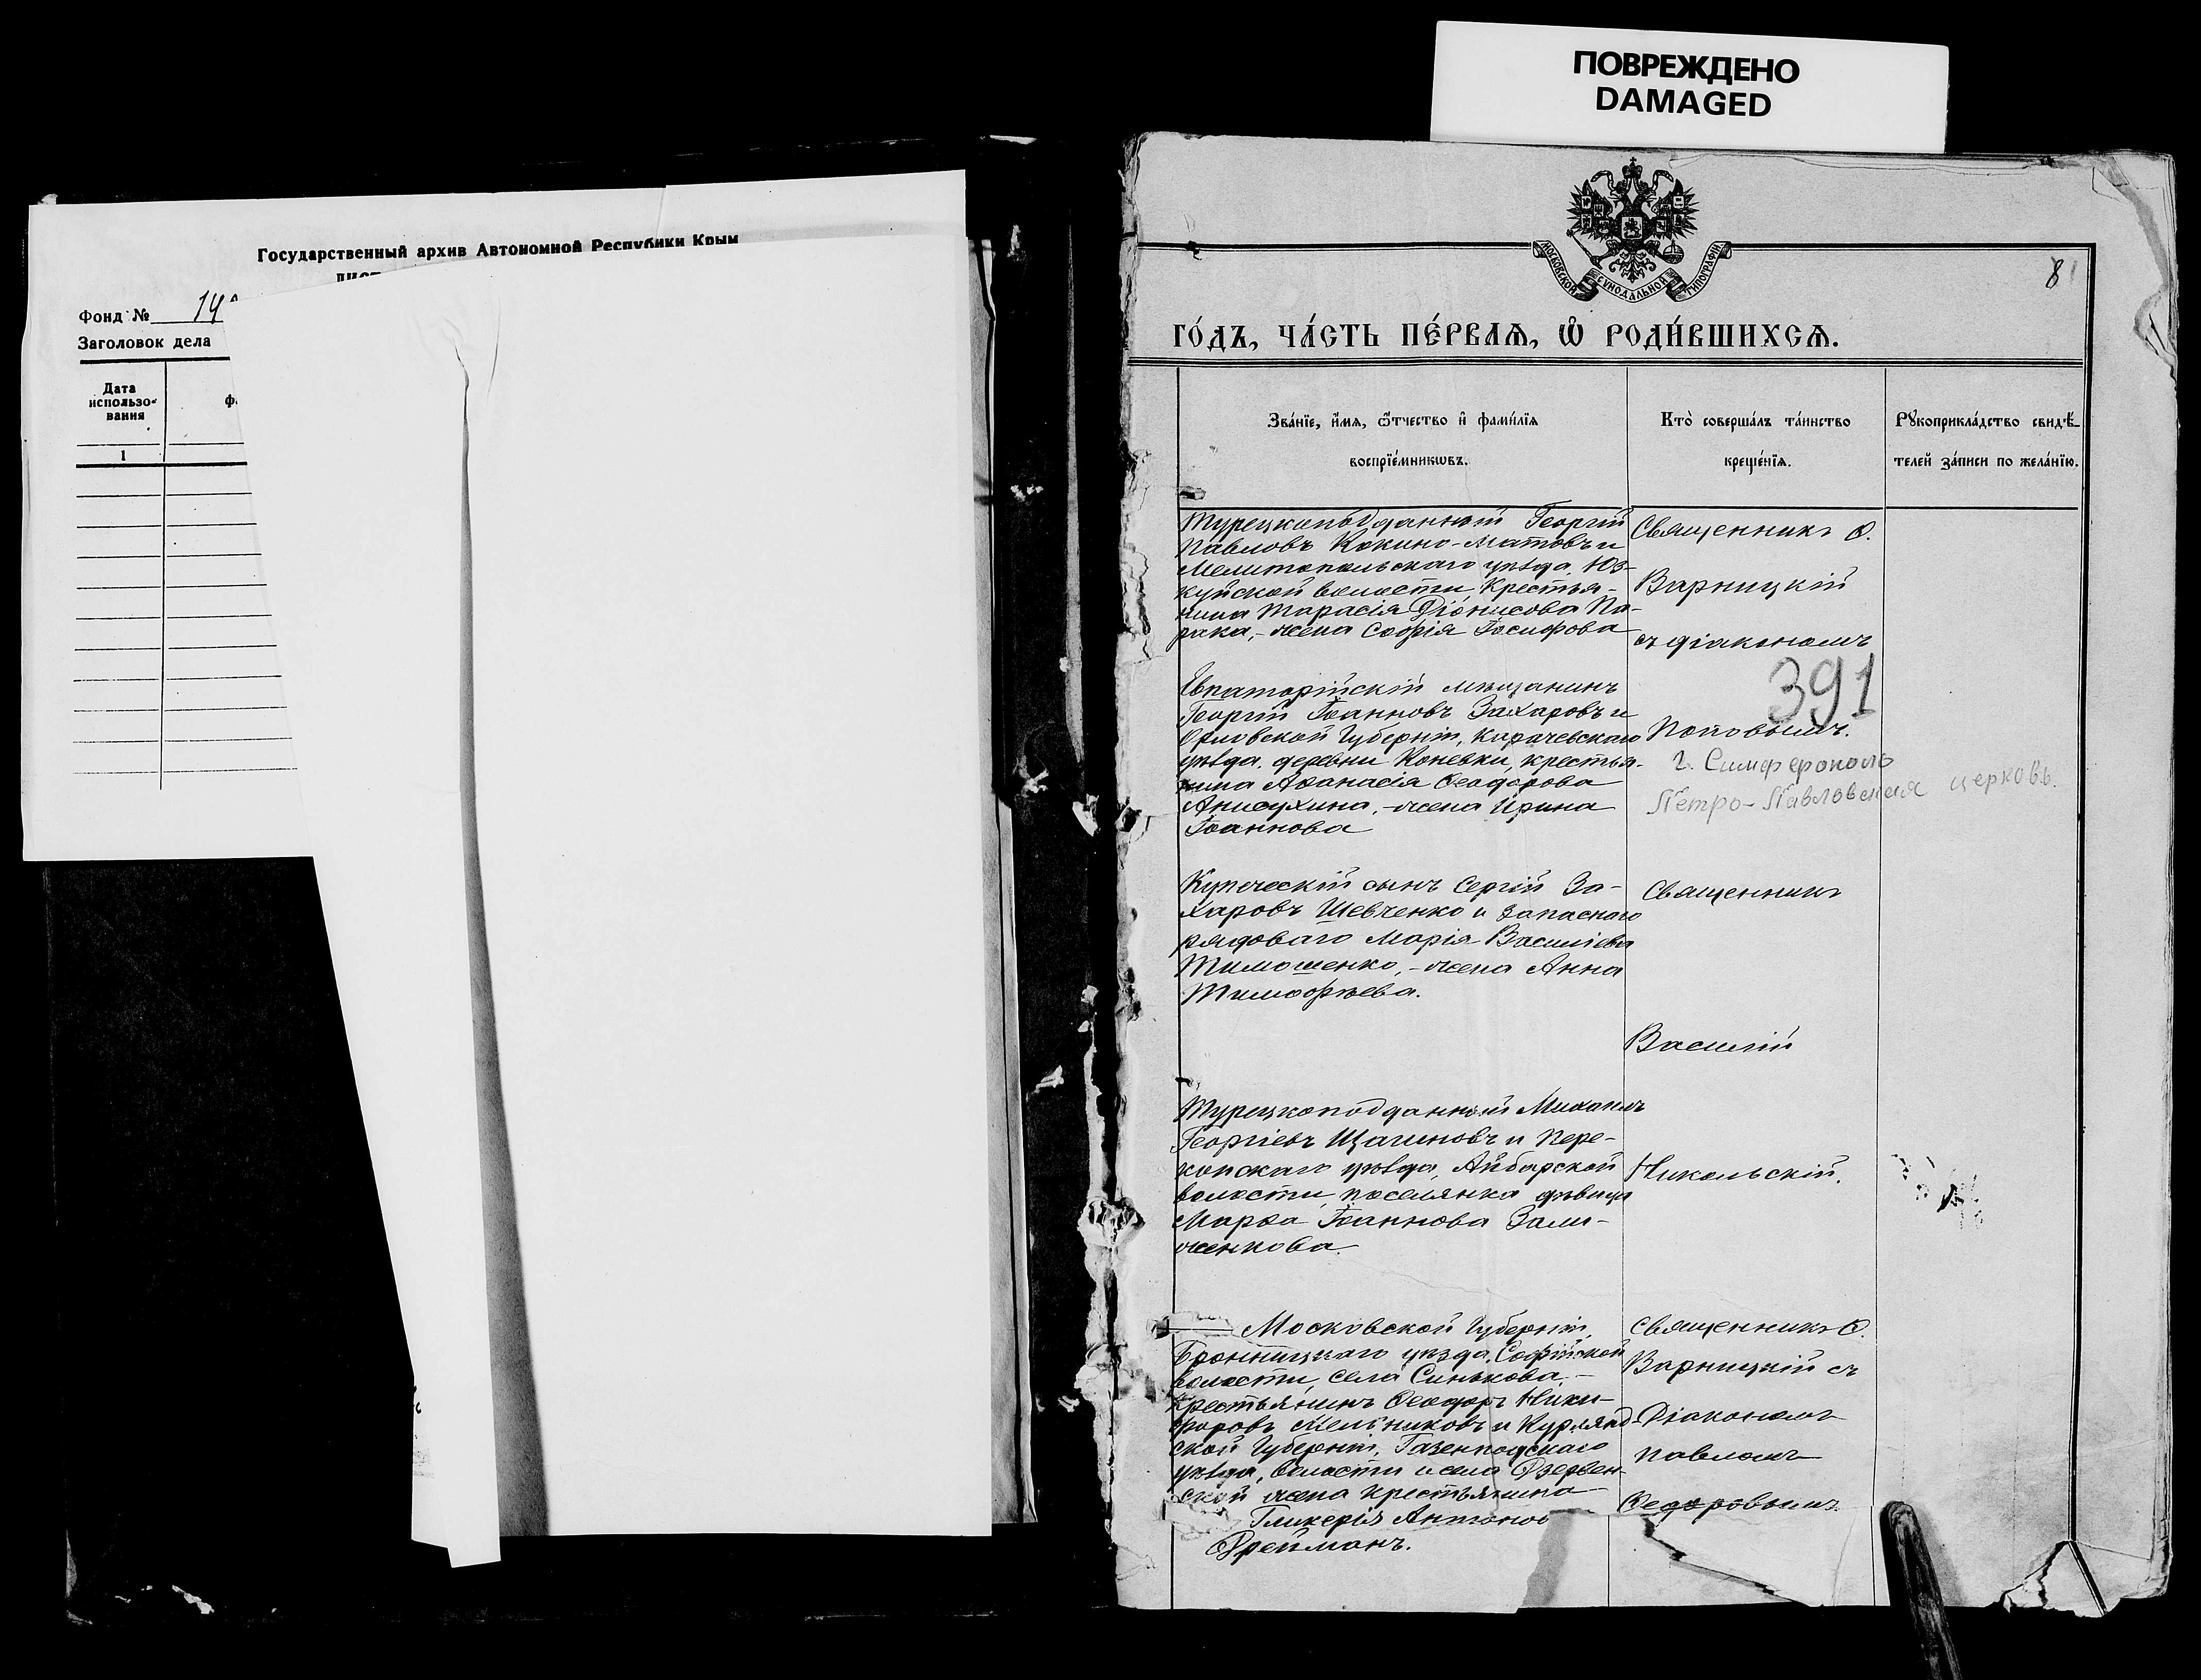 ПОВРЕЖДЕНО
DAMAGED
Государственный архив Автономной Республики Крым
Фонд № 14
Заголовок дела
Дата
использо-
вания
1
МОСКОВСКОЙ СѴНОДАЛЬНОЙ ТИПОГРАФІИ
8
ГО́ДЪ, ЧА́СТЬ ПЕ́РВАѦ, Ѽ РОДИ́ВШИХСѦ.
Зва́нїе, и҆́мѧ, ѻ҆́тчество и҆ фами́лїѧ
воспрїе́мникѡвъ.
Кто̀ соверша́лъ та́инство
креще́нїѧ.
Рꙋкоприкла́дство свидѣ́-
телей за́писи по жела́нїю.
Турецкоподданный Георгій
Павловъ Кокино-Матовъ и
Мелитопольскаго уѣзда, Юз-
куйской волости, Крестья-
нина Тарасія Діонисова Па-
рака,- жена Софія Іосифова
Священникъ Ѳ.
Варницкій
съ діакономъ
391
Поповымъ.
г. Симферополь
Петро-Павловская церковь.
Евпаторійскій мѣщанинъ
Георгій Іоанновъ Захаровъ и
Орловской Губерніи, Карачевскаго
уѣзда, деревни Коневки, крестья-
нина Аѳанасія Ѳеодорова
Анисухина,-жена Ирина
Іоаннова
Купеческій сынъ Сергій За-
харовъ Шевченко и запаснаго
рядоваго Марія Василіева
Тимошенко,-жена Анна
Тимофѣева.
Священникъ
Василій
Никольскій.
Турецкоподданный Михаилъ
Георгіевъ Щагиновъ и Пере-
копскаго уѣзда, Айбарской
волости, поселянка дѣвица
Марѳа Іоаннова Зали-
женкова.
Московской Губерніи,
Бронницкаго уѣзда, Софійской
волости, села Синькова,-
крестьянинъ Ѳеодоръ Ники-
форовъ Мельниковъ и Курлянд-
ской Губерніи, Газенподскаго
уѣзда, волости и села Дзервен-
ской жена крестьянина
Гликерія Антонов
Фрейманъ.
Священникъ Ѳ.
Варницкій съ
Діакономъ
Павломъ
Ѳедоровымъ.